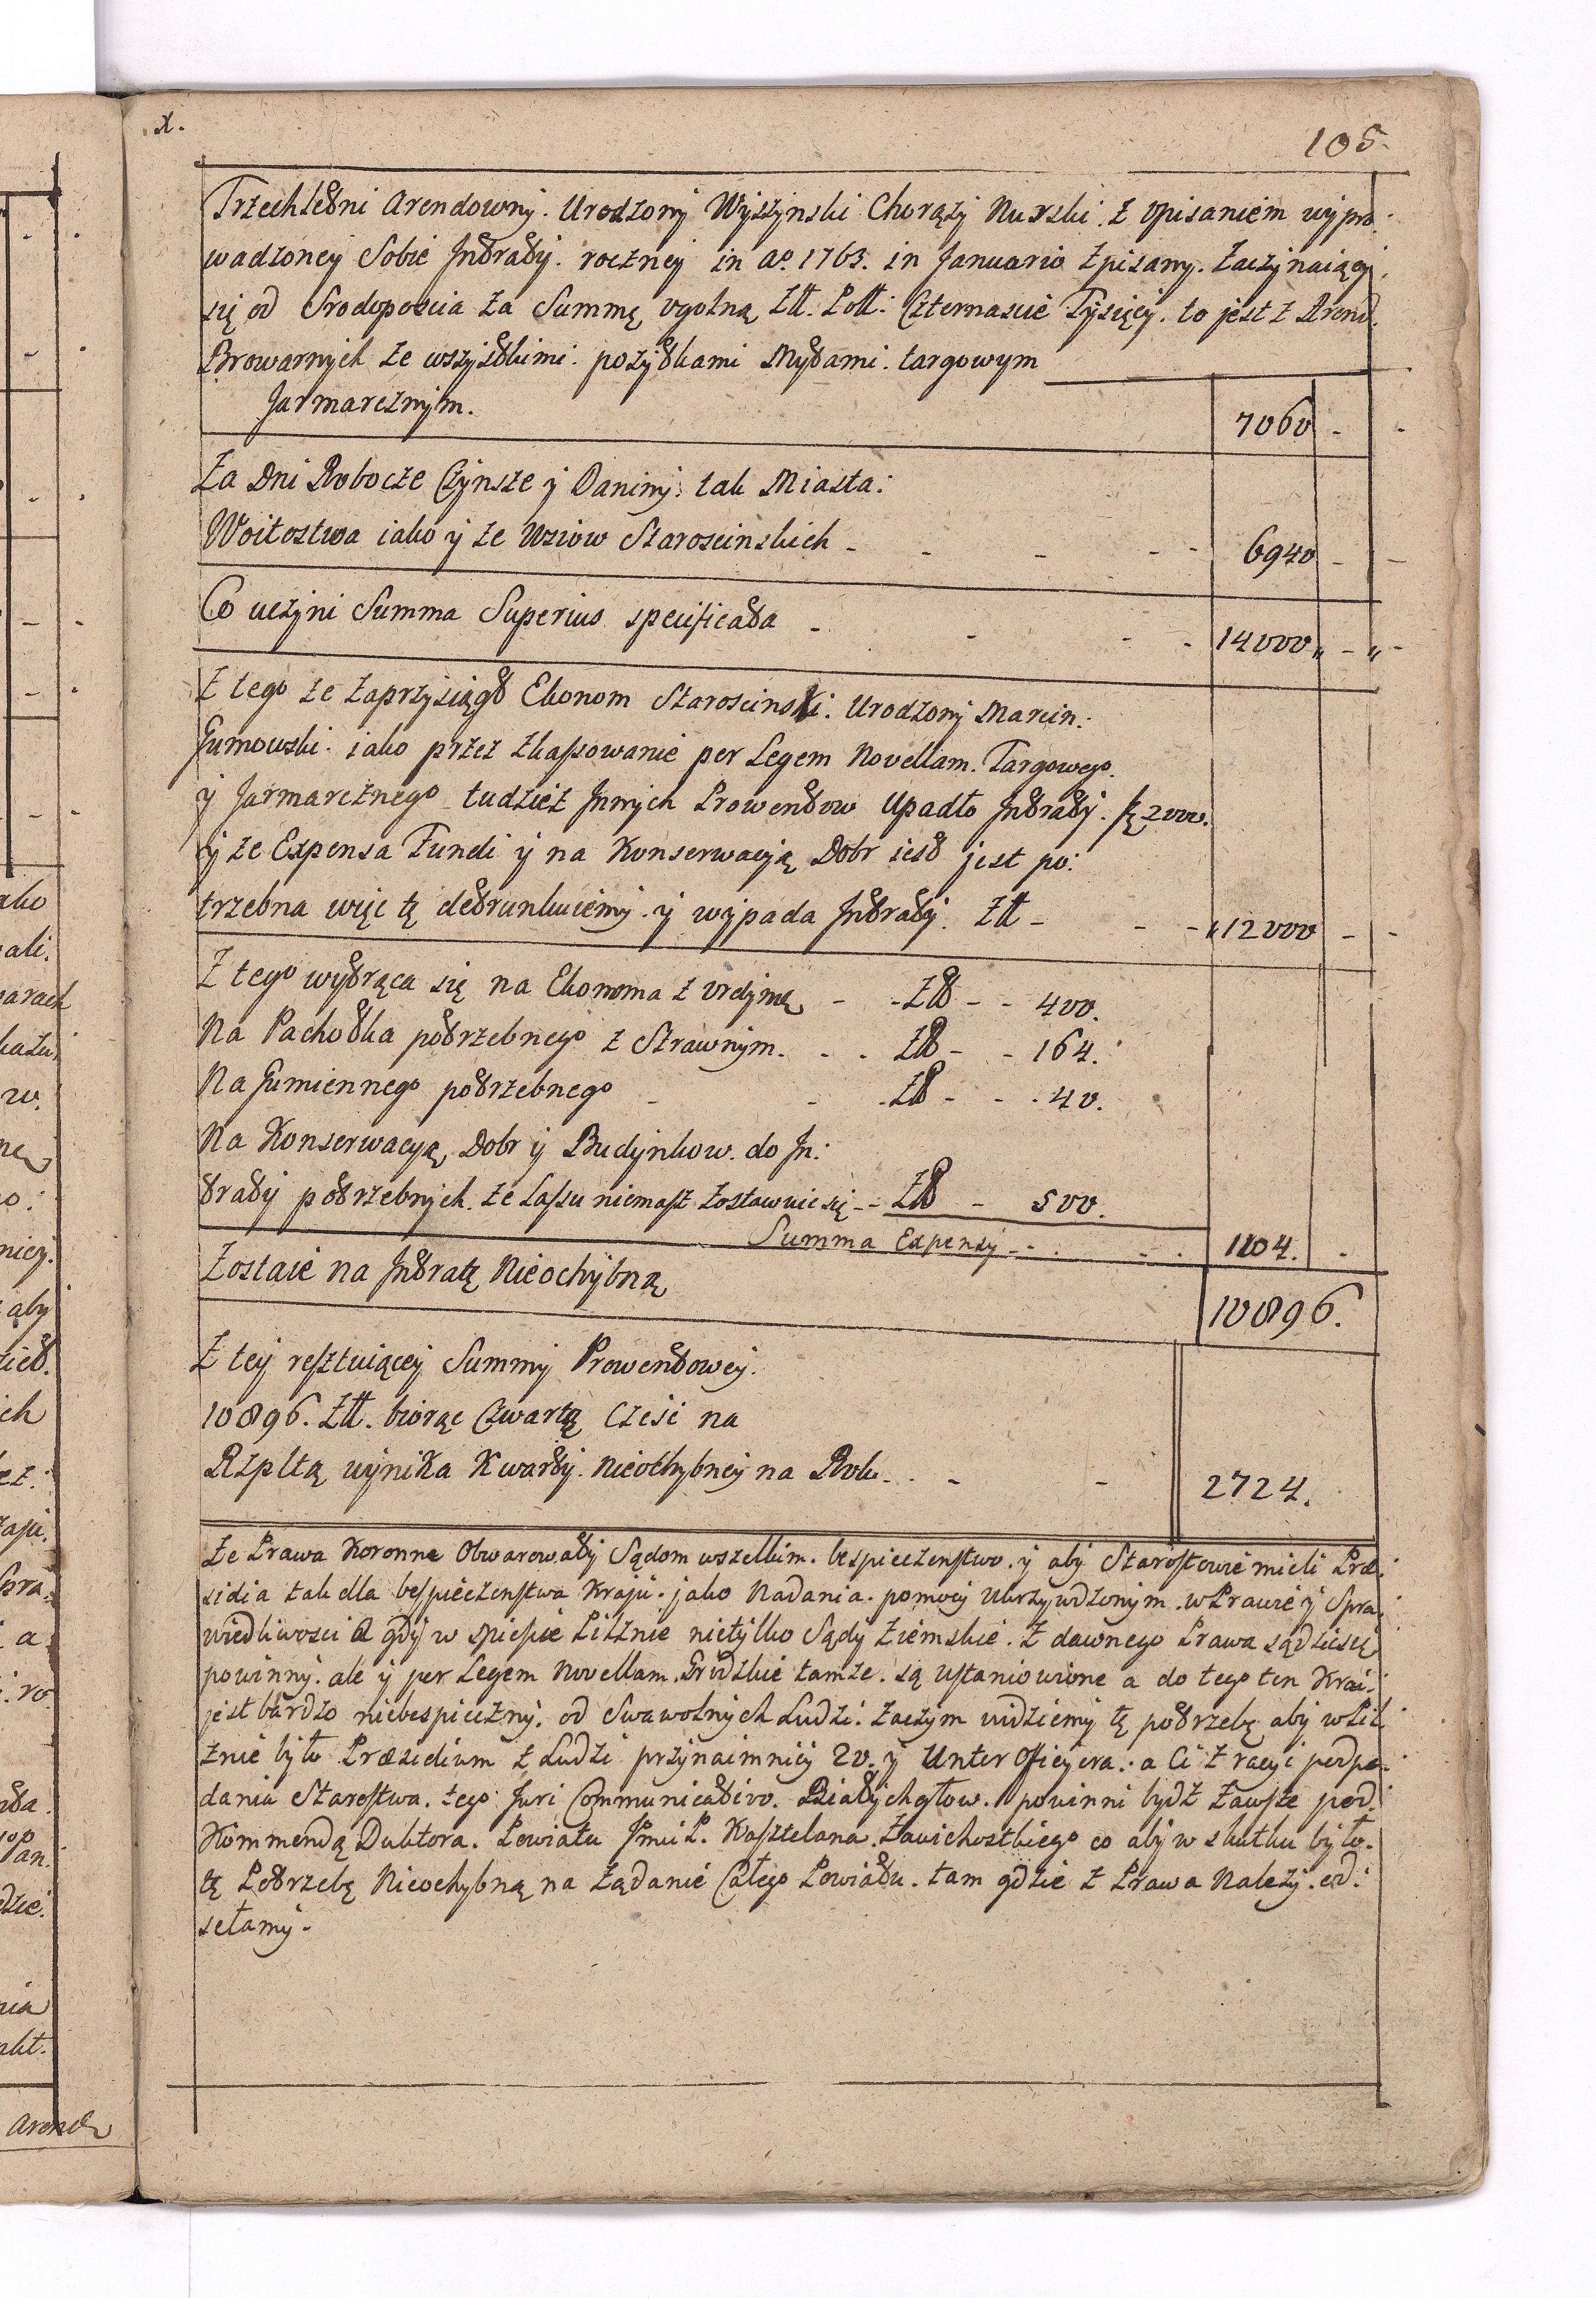 x.
105.
Trzechletni Arendowny. Urodzony Wyszynski Chorąży Nurski. z opisaniem wypro:
wadzoney Sobie Jntraty. roczney in Ao. 1763. in Januario zpisany. zaczynaiący
się od Srodoposcia za Summę ogolną Złł. Poll: Czternascie Tysięcy. to jest z Arend.
Browarnych ze wszystkimi. pożytkami Mytami. targowym
Jarmarcznym. 7060 - -
Za Dni Robocze Czynsze y Daniny: tak Miasta:
Woitostwa iako y ze Wsiow Staroscinskich - - - - - 6940 - -
Co uczyni Summa Superius specificata - - - - 14000 „ - „ -
Z tego ze zaprzysiągt Ekonom Staroscinski. Urodzony Marcin.
Gumowski. iako przez zkassowanie per Legem Novellam. Targowego.
y Jarmarcznego tudziez Jnnych Prowentow Upadło Jntraty. 2000.
y ze Expensa Fundi y na Konserwacyą Dobr iest jest po:
trzebna więc tę detrunkuiemy. y wypada Jntraty. Złł - - - „12000 - -
Z tego wytrąca się na Ekonoma z ordyną - - Złt - - 400.
Na Pachołka potrzebnego z Strawnym. - . . Złt - - 164.
Na Gumiennego potrzebnego - - . Złt - - . 40.
Na Konserwacyą Dobr y Budynkow. do Jn:
traty potrzebnych. ze Lassu niemasz zostawuie się - - Złt - 500.
Summa Expensy - - . - . 1104. .
Zostaie na Jntratę Nieochybną 10896.
Z tey resztuiącey Summy Prowentowey.
10896. Złł. biorąc Czwartą Częsc na
Rzpltą wynika Kwarty. Nieochybney na Rok. . - - 2724.
Ze Prawa Koronne Obwarowały Sądom wszelkim. bespieczenstwo. y aby Starostowie mieli Præ:
sidia tak dla bespieczenstwa Kraju. jako Nadania. pomocy Ukrzywdzonym. w Prawie y Spra:
wiedliwosci A gdy w Miescie Pilznie nietylko Sądy Ziemskie. z dawnego Prawa sądzic się
powinny. ale y per Legem Novellam. Grodzkie tamze. są Ustanowione a do tego ten Krai:
jest bardzo niebespieczny. od Swawolnych Ludzi. zaczym widziemy tę potrzebę aby w Pil
znie było Præsidium z Ludzi przynaimniey 20. y Unter Oficyera. a Ci z racyi podpo.
dania Starostwa. tego Juri Communicativo. Białychgłow. powinni bydz zawsze pod.
Kommendą Duktora. Powiatu JmciP. Kasztelana. Zawichostkiego co aby w skutku było.
tę Potrzebę Nieochybną na żądanie Całego Powiatu. tam gdzie z Prawa Nalezy. od:
sełamy.